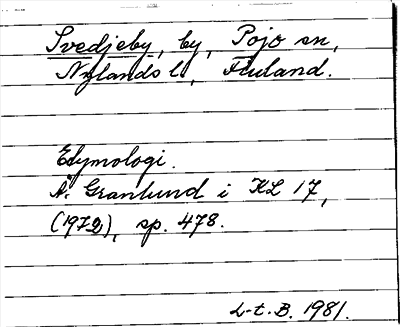 Svedjeby, by, Pojo sn,
Nylands l, Finland.
Etymologi.
Å. Granlund i KL 17,
(1972), sp. 478.
L-t. B. 1981.